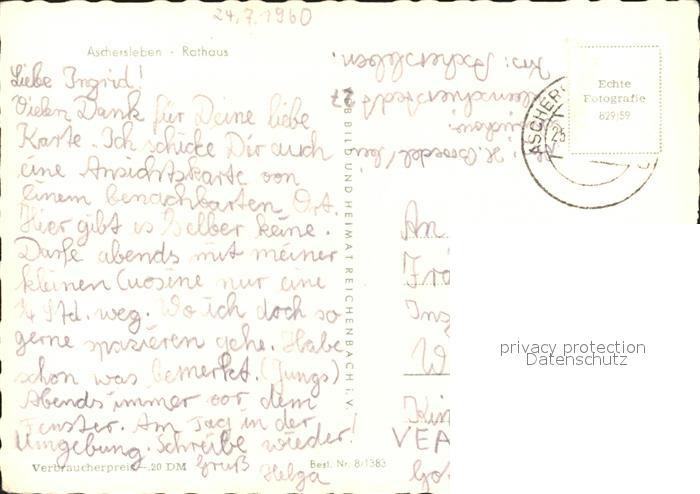 24.7.1960
Aschersleben - Rathaus
Liebe Ingrid!
Vielen Dank für Deine liebe
Karte. Ich schicke Dir auch
eine Ansichtskarte von
einem benachbarten Ort.
Hier gibt es selber keine.
Darfe abends mit meiner
kleinen Cuosine nur eine
¼ Std. weg. Wo ich doch so
gerne spazieren gehe. Habe
schon was bemerkt. (Jungs)
Abends immer vor dem
Fenster. Am Tag in der
Umgebung. Schreibe wieder!
Gruß
Helga
Verbraucherpreis -.20 DM
Best. Nr. 8/1383
VEB BILD UND HEIMAT REICHENBACH i. V.
Krs: Aschersleben.
27
ASCHER
25
Echte
Fotografie
829|59
An
Frä
Ing
W
Kin
VEA
Go
privacy protection
Datenschutz